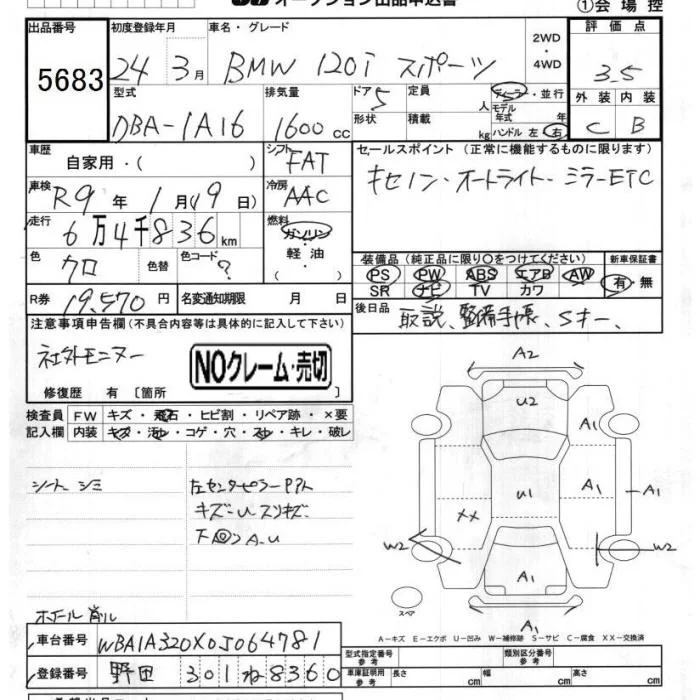 オークション出品申込書
①会場控
出品番号 初度登録年月 車名・グレード 評価点
5683
24 3月 BMW 120i スポーツ 2WD・4WD 3.5
型式 排気量 ドア 定員 ディーラー・並行 外装 内装
DBA-1A16 1600cc 5 人 モデル年式 年 C B
形状 積載 kg ハンドル 左 右
車歴 シフト セールスポイント (正常に機能するものに限ります)
自家用・( ) FAT
車検 冷房 キセノン・オートライト・ミラーETC
R9年1月(9日) AAC
走行 燃料
6万4千836km ガソリン・軽油・( )
色 色替 色コード 装備品 (純正品に限り○をつけてください) 新車保証書
クロ ? PS PW ABS エアB AW 有・無
SR ナビ TV カワ
R券 19,570円 名変通知期限 月 日 後日品
取説、整備手帳、Sキー、
注意事項申告欄(不具合内容等は具体的に記入して下さい)
社外モニター
NOクレーム・売切
修復歴 有 [箇所
検査員 FW キズ・飛石・ヒビ割・リペア跡・×要
記入欄 内装 キズ・汚れ・コゲ・穴・スレ・キレ・破レ
A2
U2
A1
シート シミ 左センターピラーPアト
U1 A1 A1
キズ・Uスリキズ
XX
下回りA.U
W2 W2
A1
スペア
A1
ホイール 削ル
A-キズ E-エクボ U-凹み W-補修跡 S-サビ C-腐食 XX-交換済
車台番号 WBA1A320X0J064781
型式指定番号 参考 類別区分番号 参考
登録番号 野田 301 ね 8360
車庫証明用 参考 長さ cm 幅 cm 高さ cm